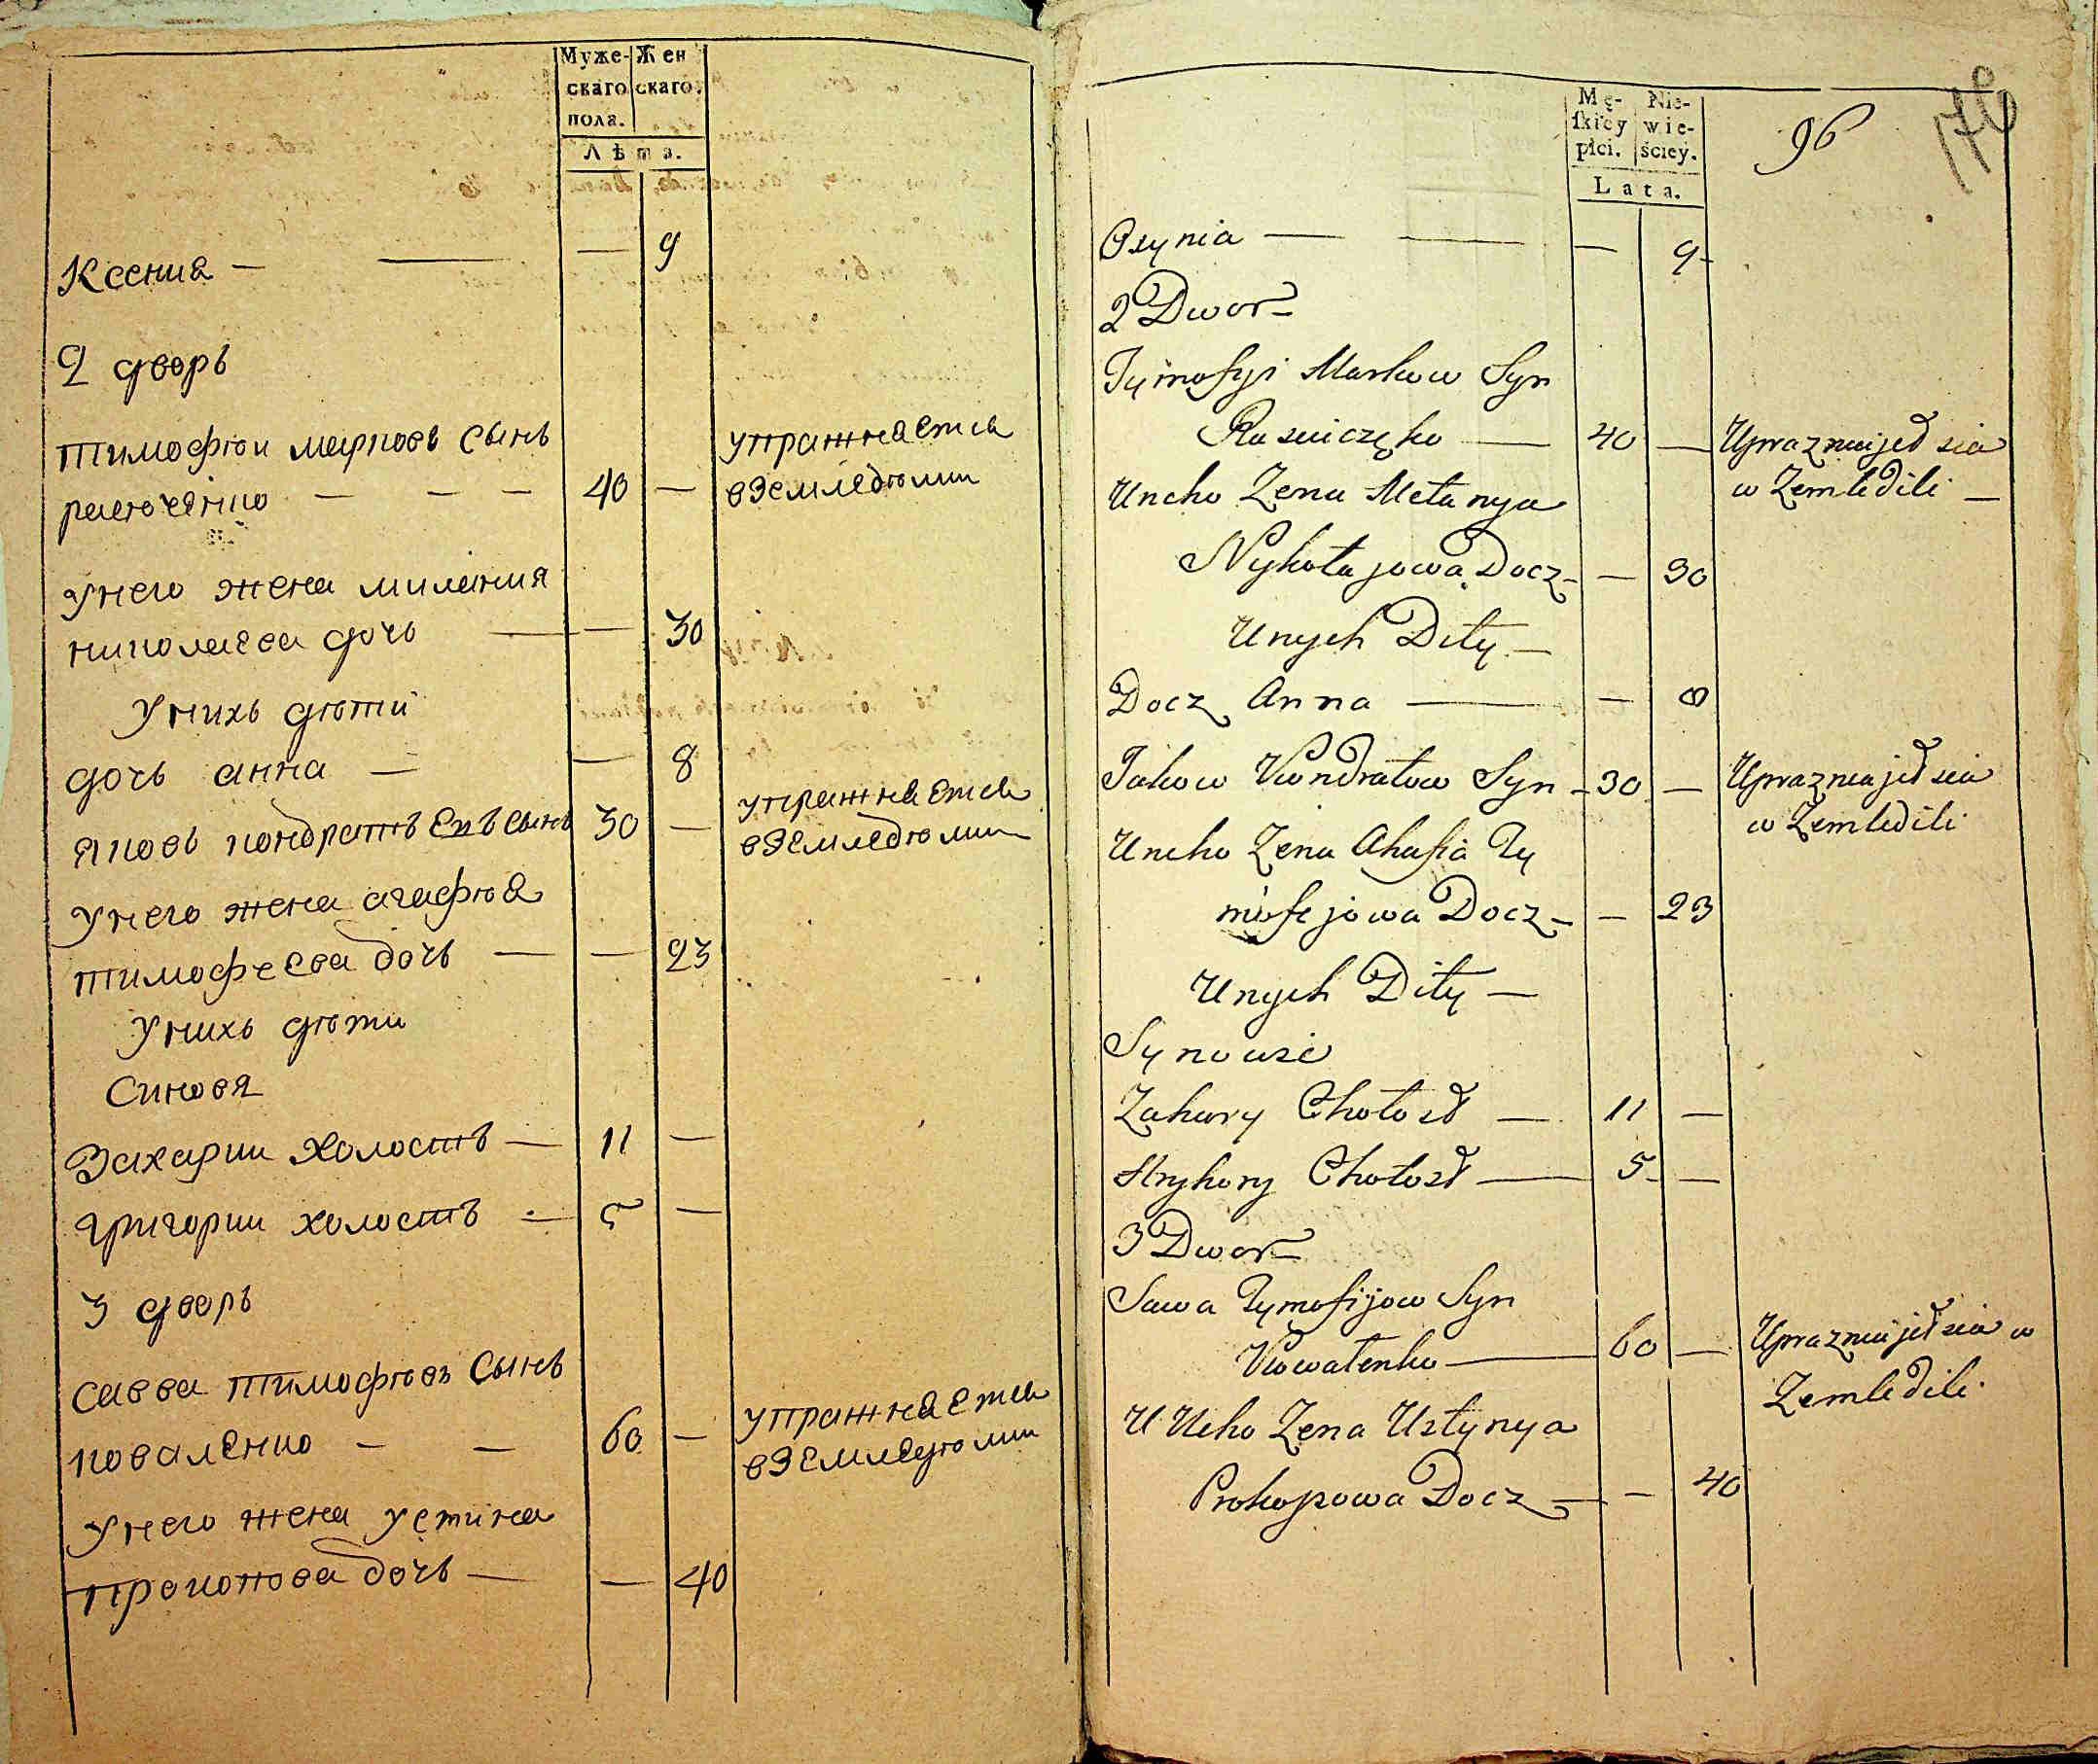 Муже- Жен
скаго скаго.
пола.
Лѣта.
Ксения — — — 9
2 дворъ
тимофѣи марковъ сынъ
— — — 40 — упражняется
в земледѣлии
Унего жена милания
николаева дочь — — 30
Унихъ дѣти
дочь анна — — 8
яковъ кондратъевъ сынъ 30 — упражняется
в земледѣлии
Унего жена агафѣя
тимофеева дочь — — 23
Унихъ дѣти
Синовя
Захарии холостъ — 11 —
григории холостъ — 5 —
3 дворъ
савва тимофѣевъ сынъ
коваленко — — 60 — упражняется
в земледѣлии
Унего жена устина
прокопова дочь — — 40
Mę- Nie-
skiey wie-
płci. ściey.
Lata.
96
176
Oxynia — — — 9
2 Dwor
Tymofyi Markow Syn
— 40 — Uprazniajet sia
w Zemledili —
Uneho Zena Mełanya
Nykołajowa Docz — — 30
Unych Dity —
Docz Anna — — 8
Jakow Kondratow Syn — 30 — Uprazniajet sia
w Zemledili
Uneho Zena Ahafia Ty
mofejowa Docz — — 23
Unych Dity —
Synowie
Zahary Chołost — 11 —
Hryhory Chołost — 5 —
3 Dwor
Sawa Tymofijow Syn
Kowalenko — 60 — Uprazniajet sia w
Zemledili
U Neho Zena Ustynya
Prokopowa Docz — — 40